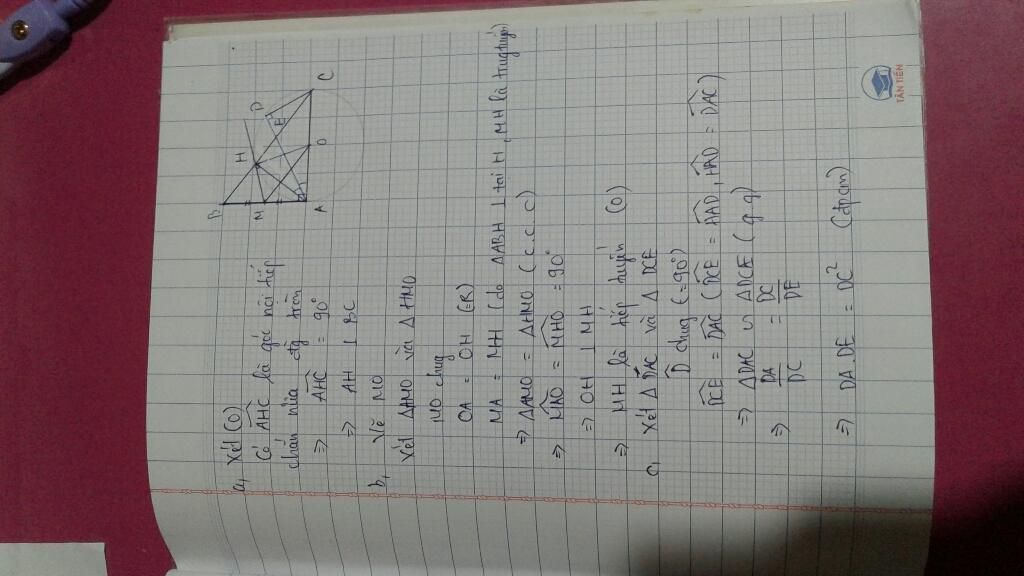 a, Xét (O)
Có \widehat{AHC} là góc nội tiếp
chắn nửa đg tròn
⇒ \widehat{AHC} = 90°
⇒ AH ⊥ BC
b, Vẽ MO
Xét ΔAMO và ΔHMO
MO chung
OA = OH (=R)
MA = MH (do ΔABH ⊥ tại H, MH là trung tuyến)
⇒ ΔAMO = ΔHMO (c.c.c)
⇒ \widehat{MAO} = \widehat{MHO} = 90°
⇒ OH ⊥ MH
⇒ MH là tiếp tuyến (O)
c, Xét Δ DAC và Δ DCE
\widehat{D} chung (=90°)
\widehat{DCE} = \widehat{DAC} (\widehat{DCE} = \widehat{HAD}, \widehat{HAD} = \widehat{DAC})
⇒ ΔDAC ∽ ΔDCE (g.g)
⇒ DA/DC = DC/DE
⇒ DA.DE = DC² (đpcm)
B
H
D
M
E
A
O
C
TÂN TIẾN